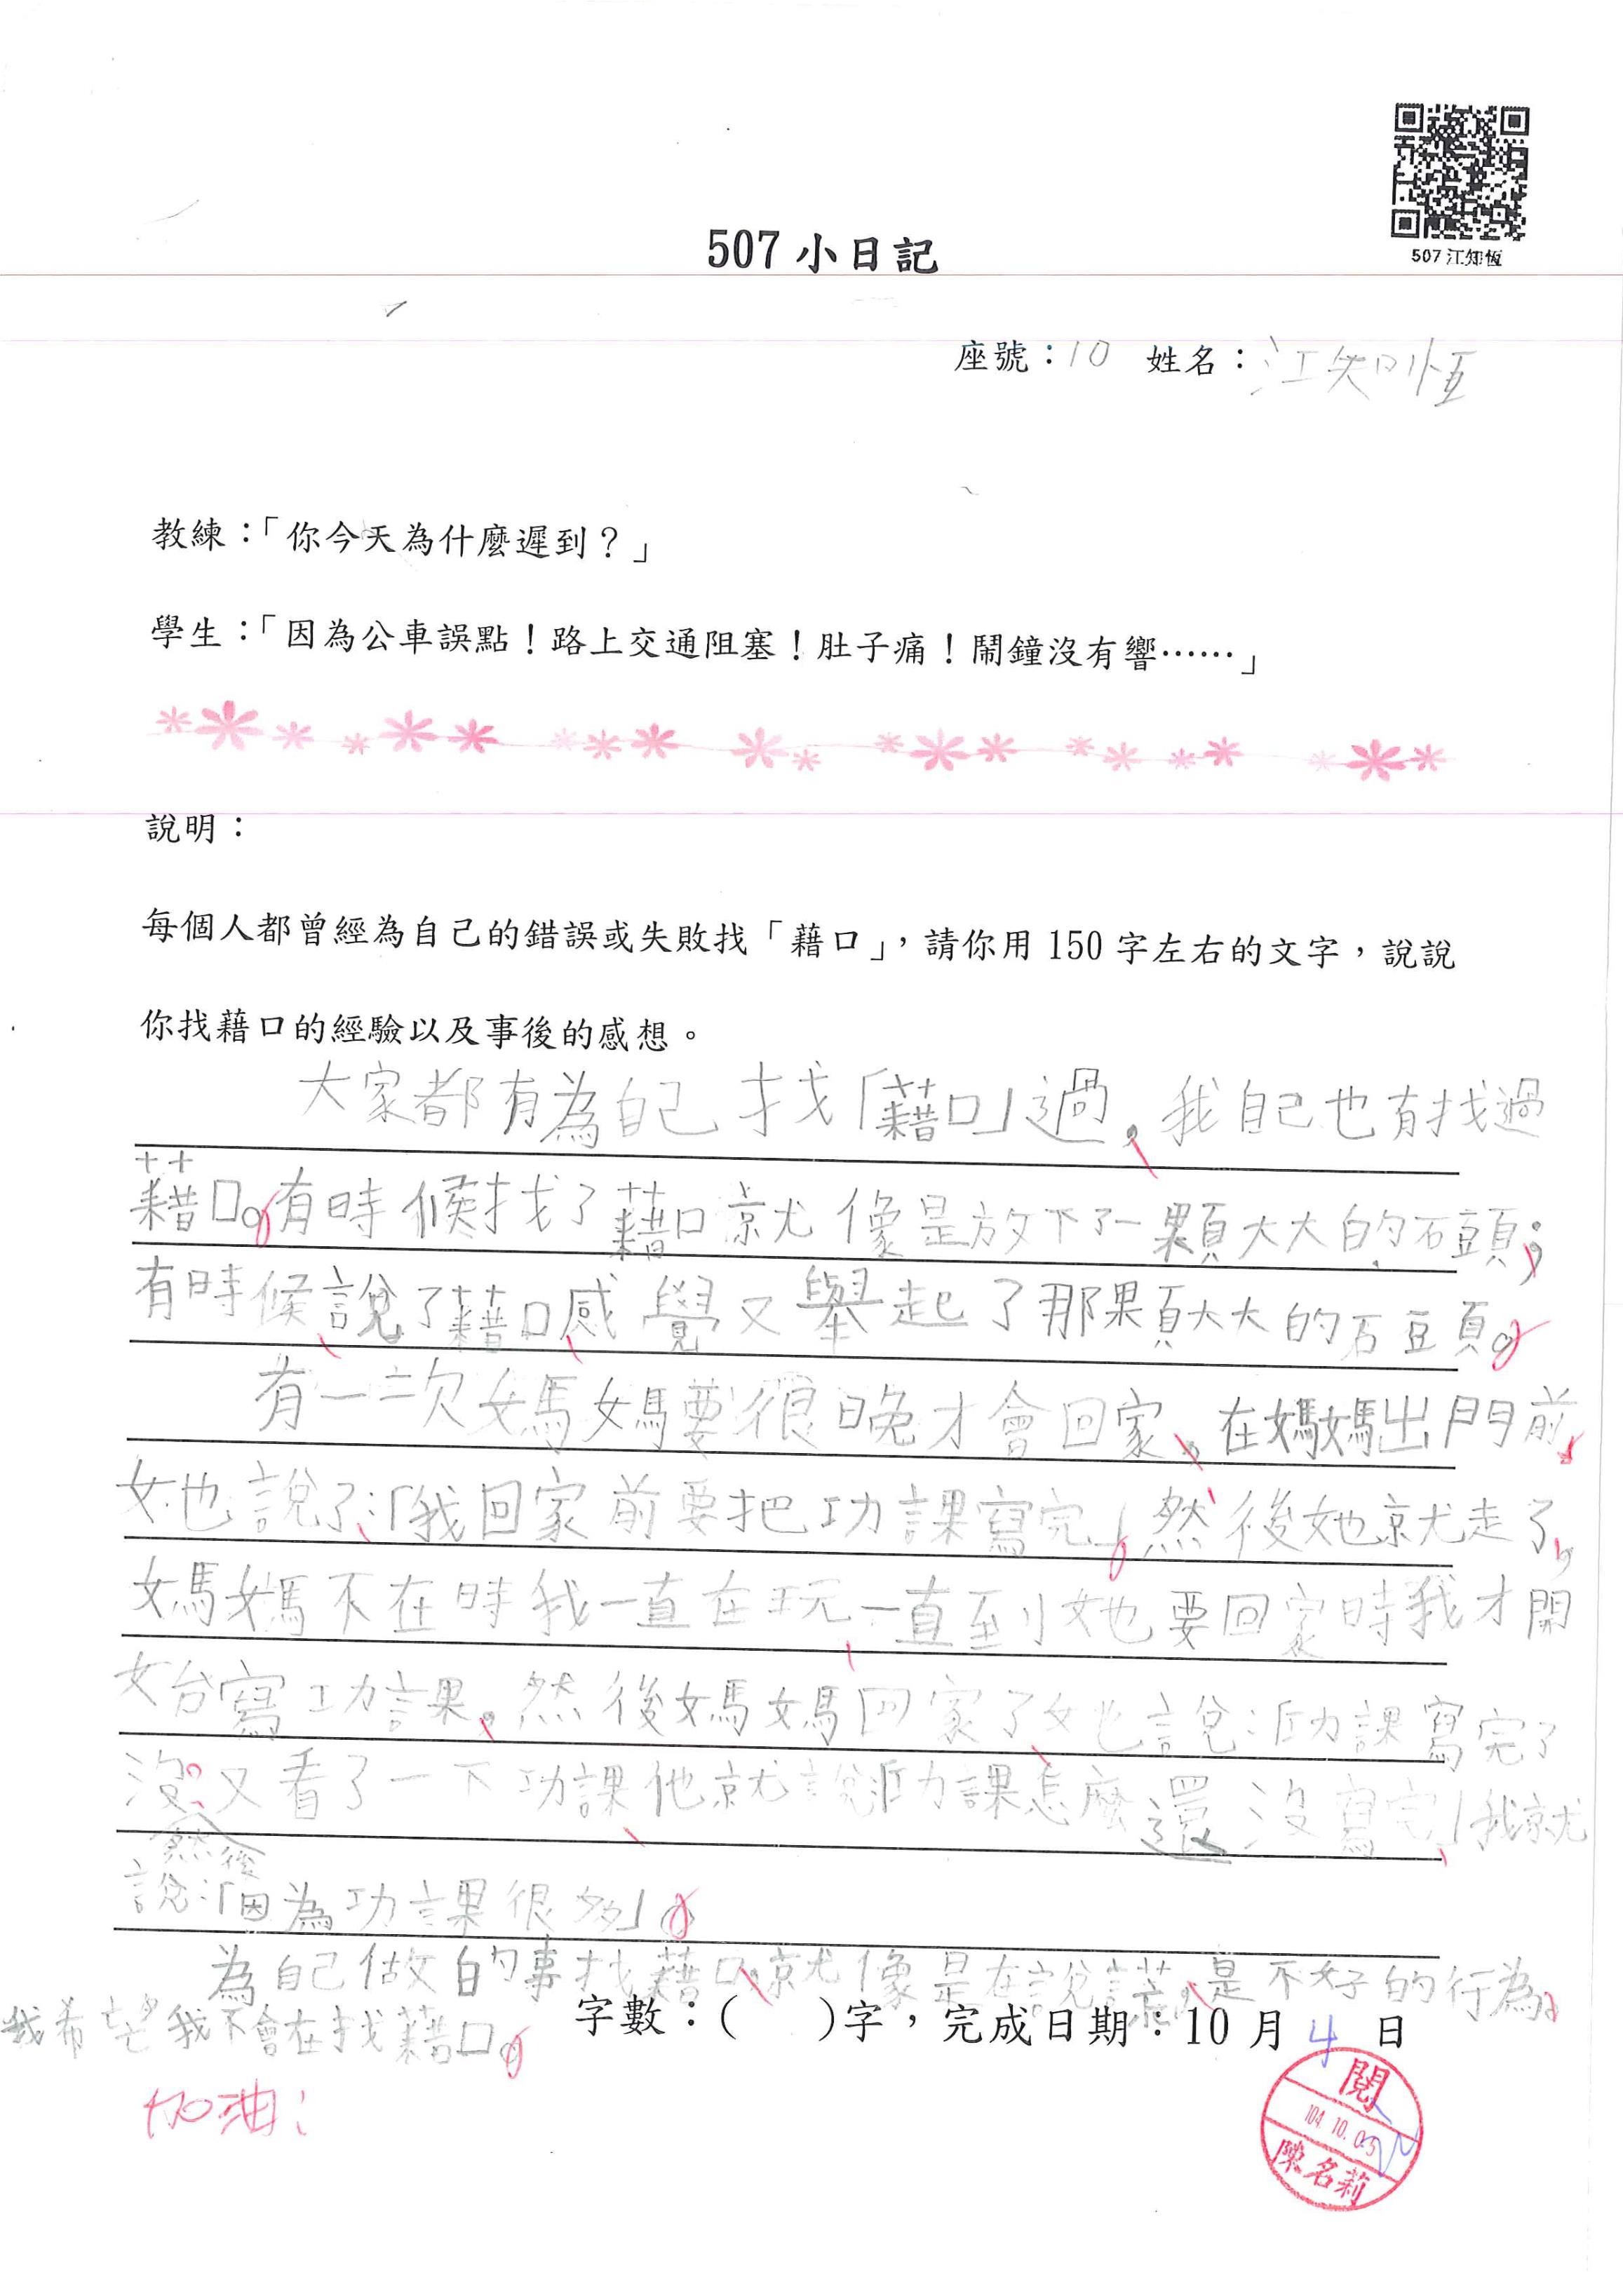 507 江知恆
507 小日記
座號：10 姓名：江知恆
教練：「你今天為什麼遲到？」
學生：「因為公車誤點！路上交通阻塞！肚子痛！鬧鐘沒有響……」
說明：
每個人都曾經為自己的錯誤或失敗找「藉口」，請你用 150 字左右的文字，說說
你找藉口的經驗以及事後的感想。
大家都有為自己找「藉口」過，我自己也有找過
藉口。有時候找了藉口就像是放下了一顆大大的石頭；
有時候說了藉口感覺又舉起了那顆大大的石頭。
有一次媽媽要很晚才會回家，在媽媽出門前，
她說了：「我回家前要把功課寫完」。然後她就走了，
媽媽不在時我一直在玩，一直到她要回家時我才開
始寫功課。然後媽媽回家了，她說：「功課寫完了
沒。又看了一下功課，他就說「功課怎麼還沒寫完」，我就
然後
說：「因為功課很多」。
為自己做的事找藉口，就像是在說謊，是不好的行為。
我希望我不會在找藉口。
字數：( )字，完成日期：10 月 4 日
加油！
閱
104.10.05
陳名莉